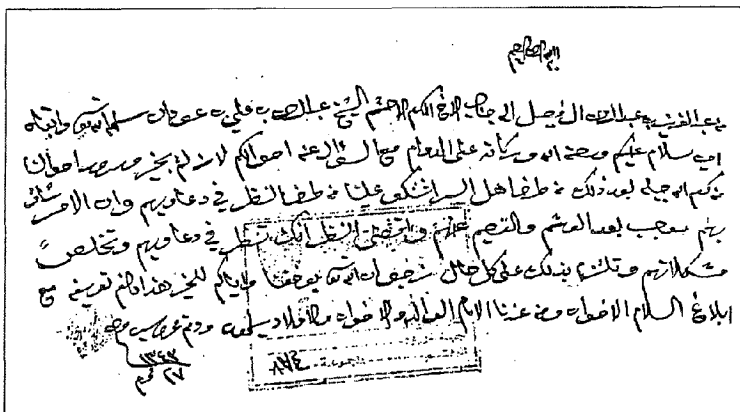 بسم الله الرحمن الرحيم
من عبد العزيز بن عبد الرحمن ال فيصل الى جناب الاخ المكرم الاحشم الشيخ عبد الله بن علي بن سلمه الله تعالى وابقاه
امين سلام عليكم ورحمة الله وبركاته على الدوام مع السؤال عن احوالكم لا زلتم بخير وسرور احوالنا
من كرم الله جميله بعد ذلك من طرف اهل السر اشتكو علينا من طرف النظر في دعاويهم وان الامر
بهم موجب بعد الهشم والتصيم عليهم واقتضى النظر انك تنظر في دعاويهم وتخلص
مشكلاتهم وتلتزم بذلك على كل حال نرجو ان الله تعالى يوفقنا واياكم للخير هذا ما لزم تعريفه مع
ابلاغ السلام الاخوان ومن عندنا الامام الوالد والاخوان والاولاد يسلمون ودمتم محروسين
١٣٤٣
٢٧ محرم
٨٧٤